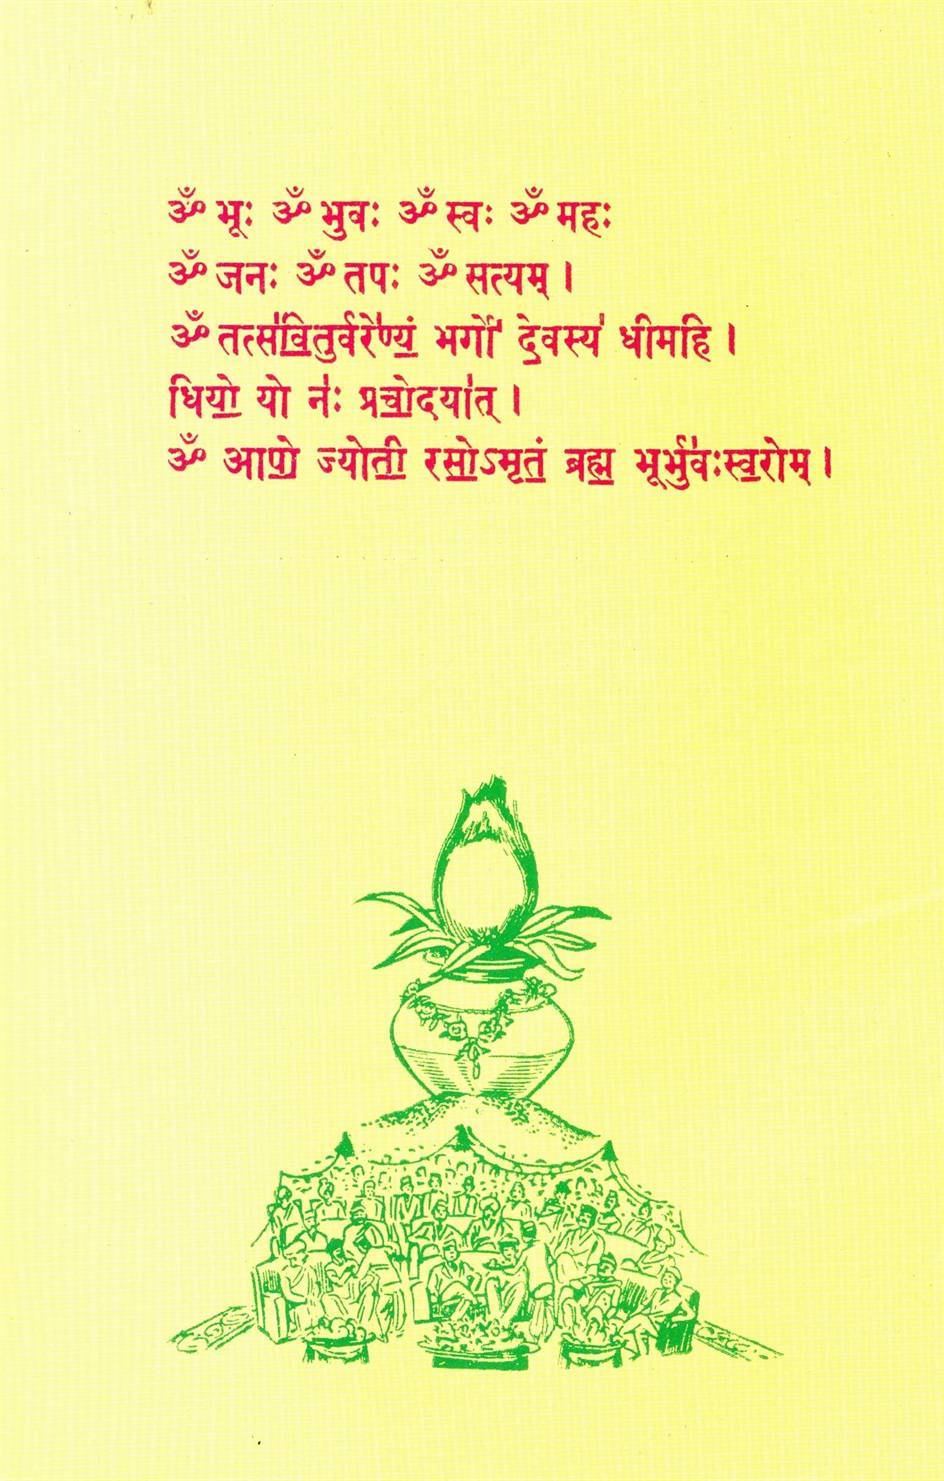 ॐ भूः ॐ भुवः ॐ स्वः ॐ महः
ॐ जनः ॐ तपः ॐ सत्यम् ।
ॐ तत्स॑वि॒तुर्वरे॑ण्यं॒ भर्गो॑ दे॒वस्य॑ धीमहि ।
धियो॒ यो न॑ः प्रचो॒दया॑त् ।
ॐ आपो॒ ज्योती॒ रसो॒ऽमृतं॒ ब्रह्म॒ भूर्भुव॑ःस्व॒रोम् ।